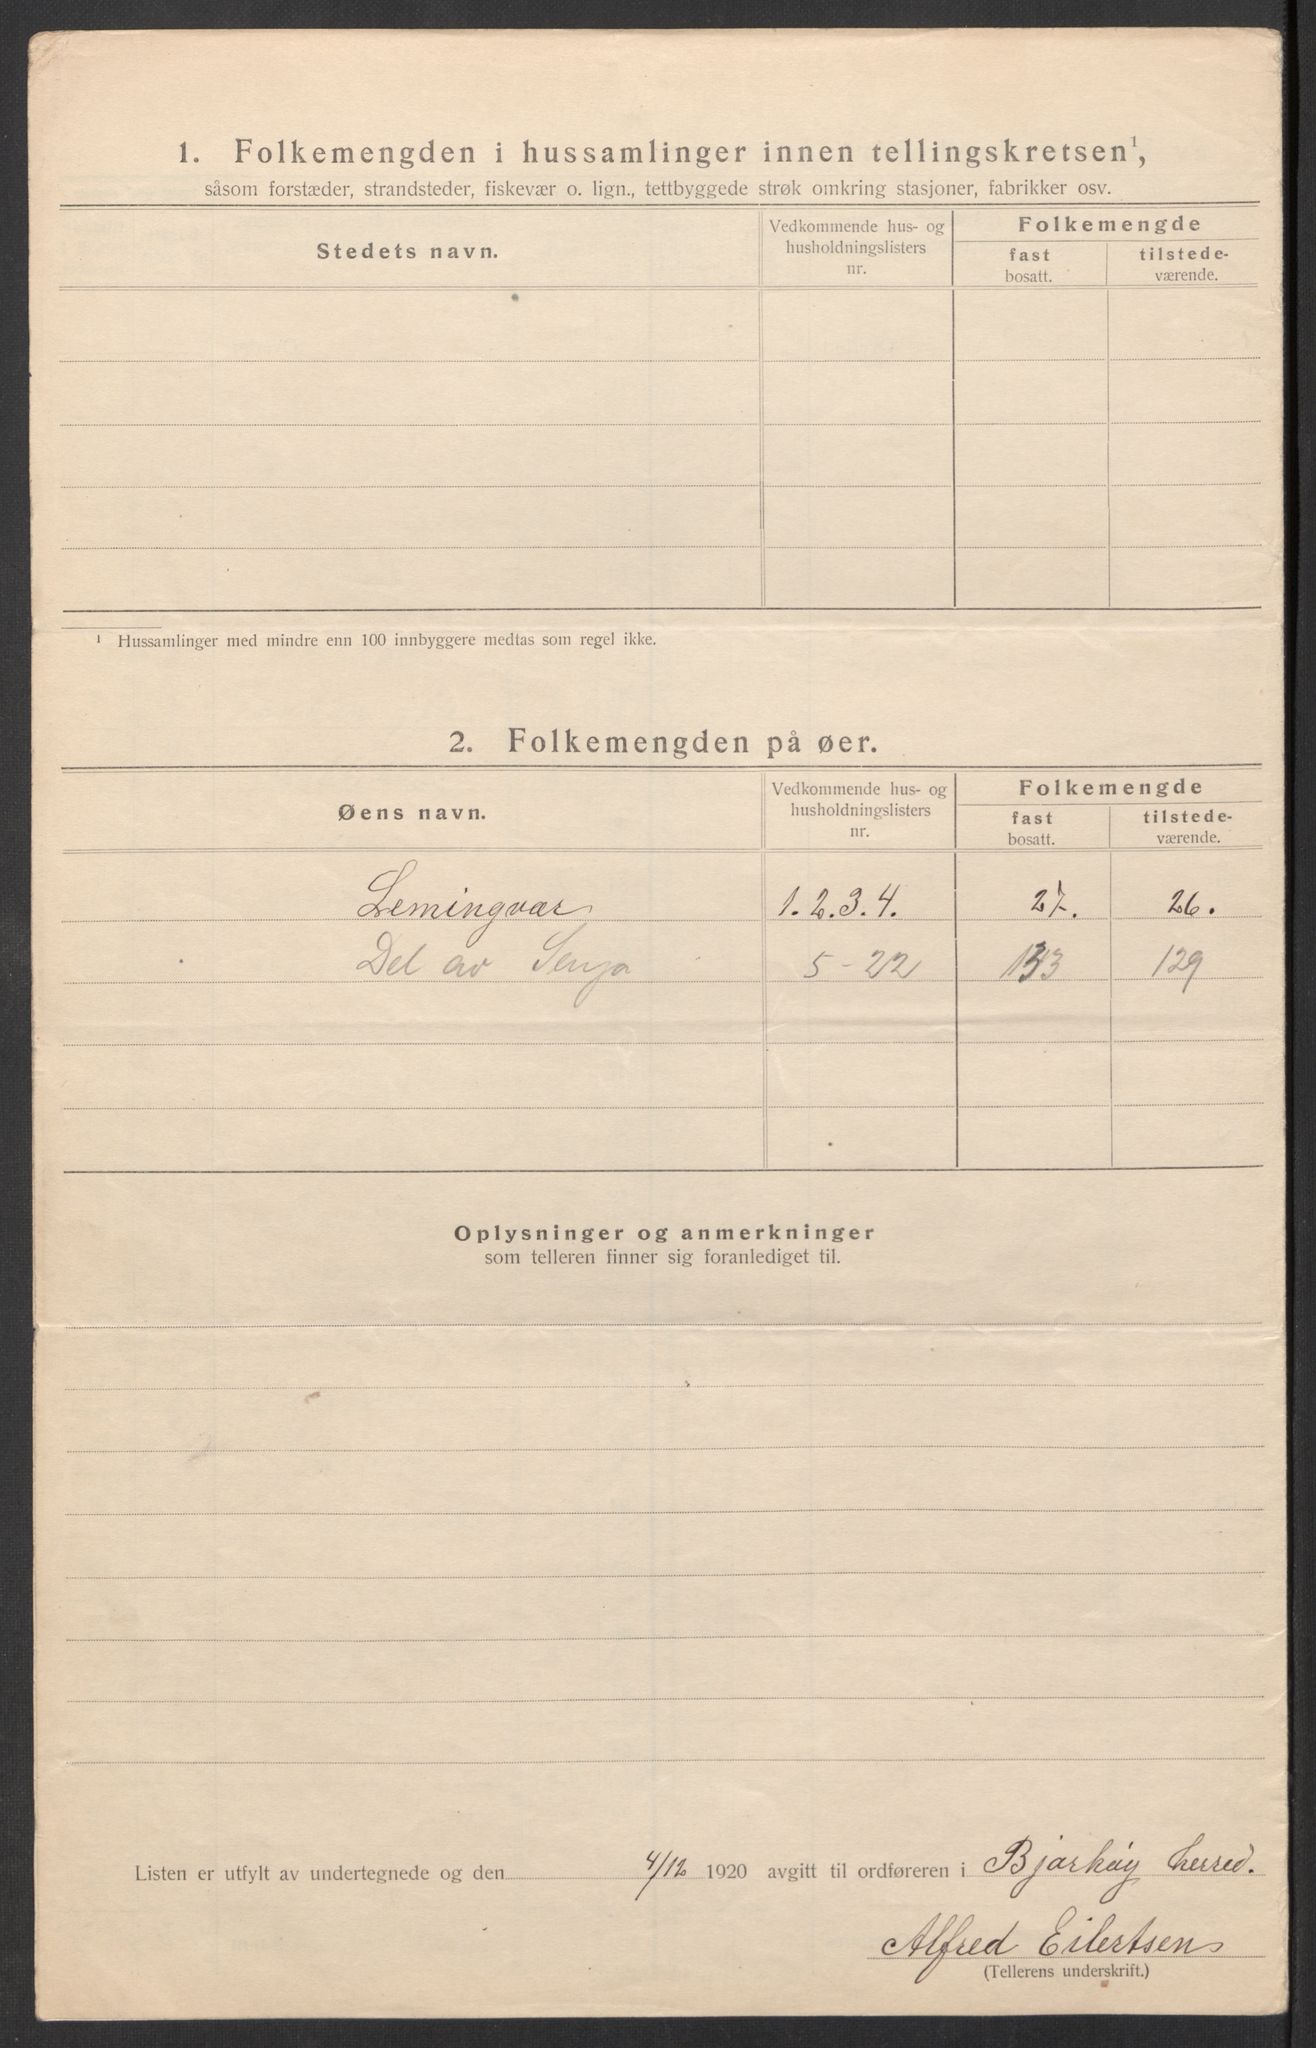 1. Folkemengden i hussamlinger innen tellingskretsen¹,
såsom forstæder, strandsteder, fiskevær o. lign., tettbyggede strøk omkring stasjoner, fabrikker osv.
Stedets navn.
Vedkommende hus- og husholdningslisters nr.
Folkemengde
fast bosatt.
tilstede-værende.
¹ Hussamlinger med mindre enn 100 innbyggere medtas som regel ikke.
2. Folkemengden på øer.
Øens navn.
Vedkommende hus- og husholdningslisters nr.
Folkemengde
fast bosatt.
tilstede-værende.
Lemingvær 1. 2. 3. 4. 27. 26.
Del av Senja 5 - 22 129
Oplysninger og anmerkninger
som telleren finner sig foranlediget til.
Listen er utfylt av undertegnede og den 4/12 1920 avgitt til ordføreren i Bjarkøy herred.
Alfred Eilertsen
(Tellerens underskrift.)